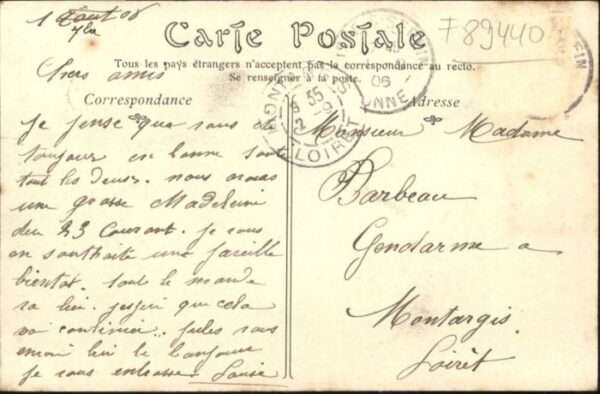 1 Aout 06
Carte Postale
F 89440
Tous les pays étrangers n'acceptent pas la correspondance au recto.
Se renseigner à la poste.
Chers amis
Correspondance
Adresse
LOIRET
YONNE
06
Je pense que vous
toujours en bonne santé
tout les deux. nous avons
une grosse Madeleine
du 23 Courant. je vous
en souhaite une pareille
bientôt. tout le monde
va bien. j'espère que cela
va continuer. Jules vous
envoie bien le bonjour
je vous embrasse Louise
Monsieur Madame
Barbeau
Gendarme a
Montargis
Loirèt